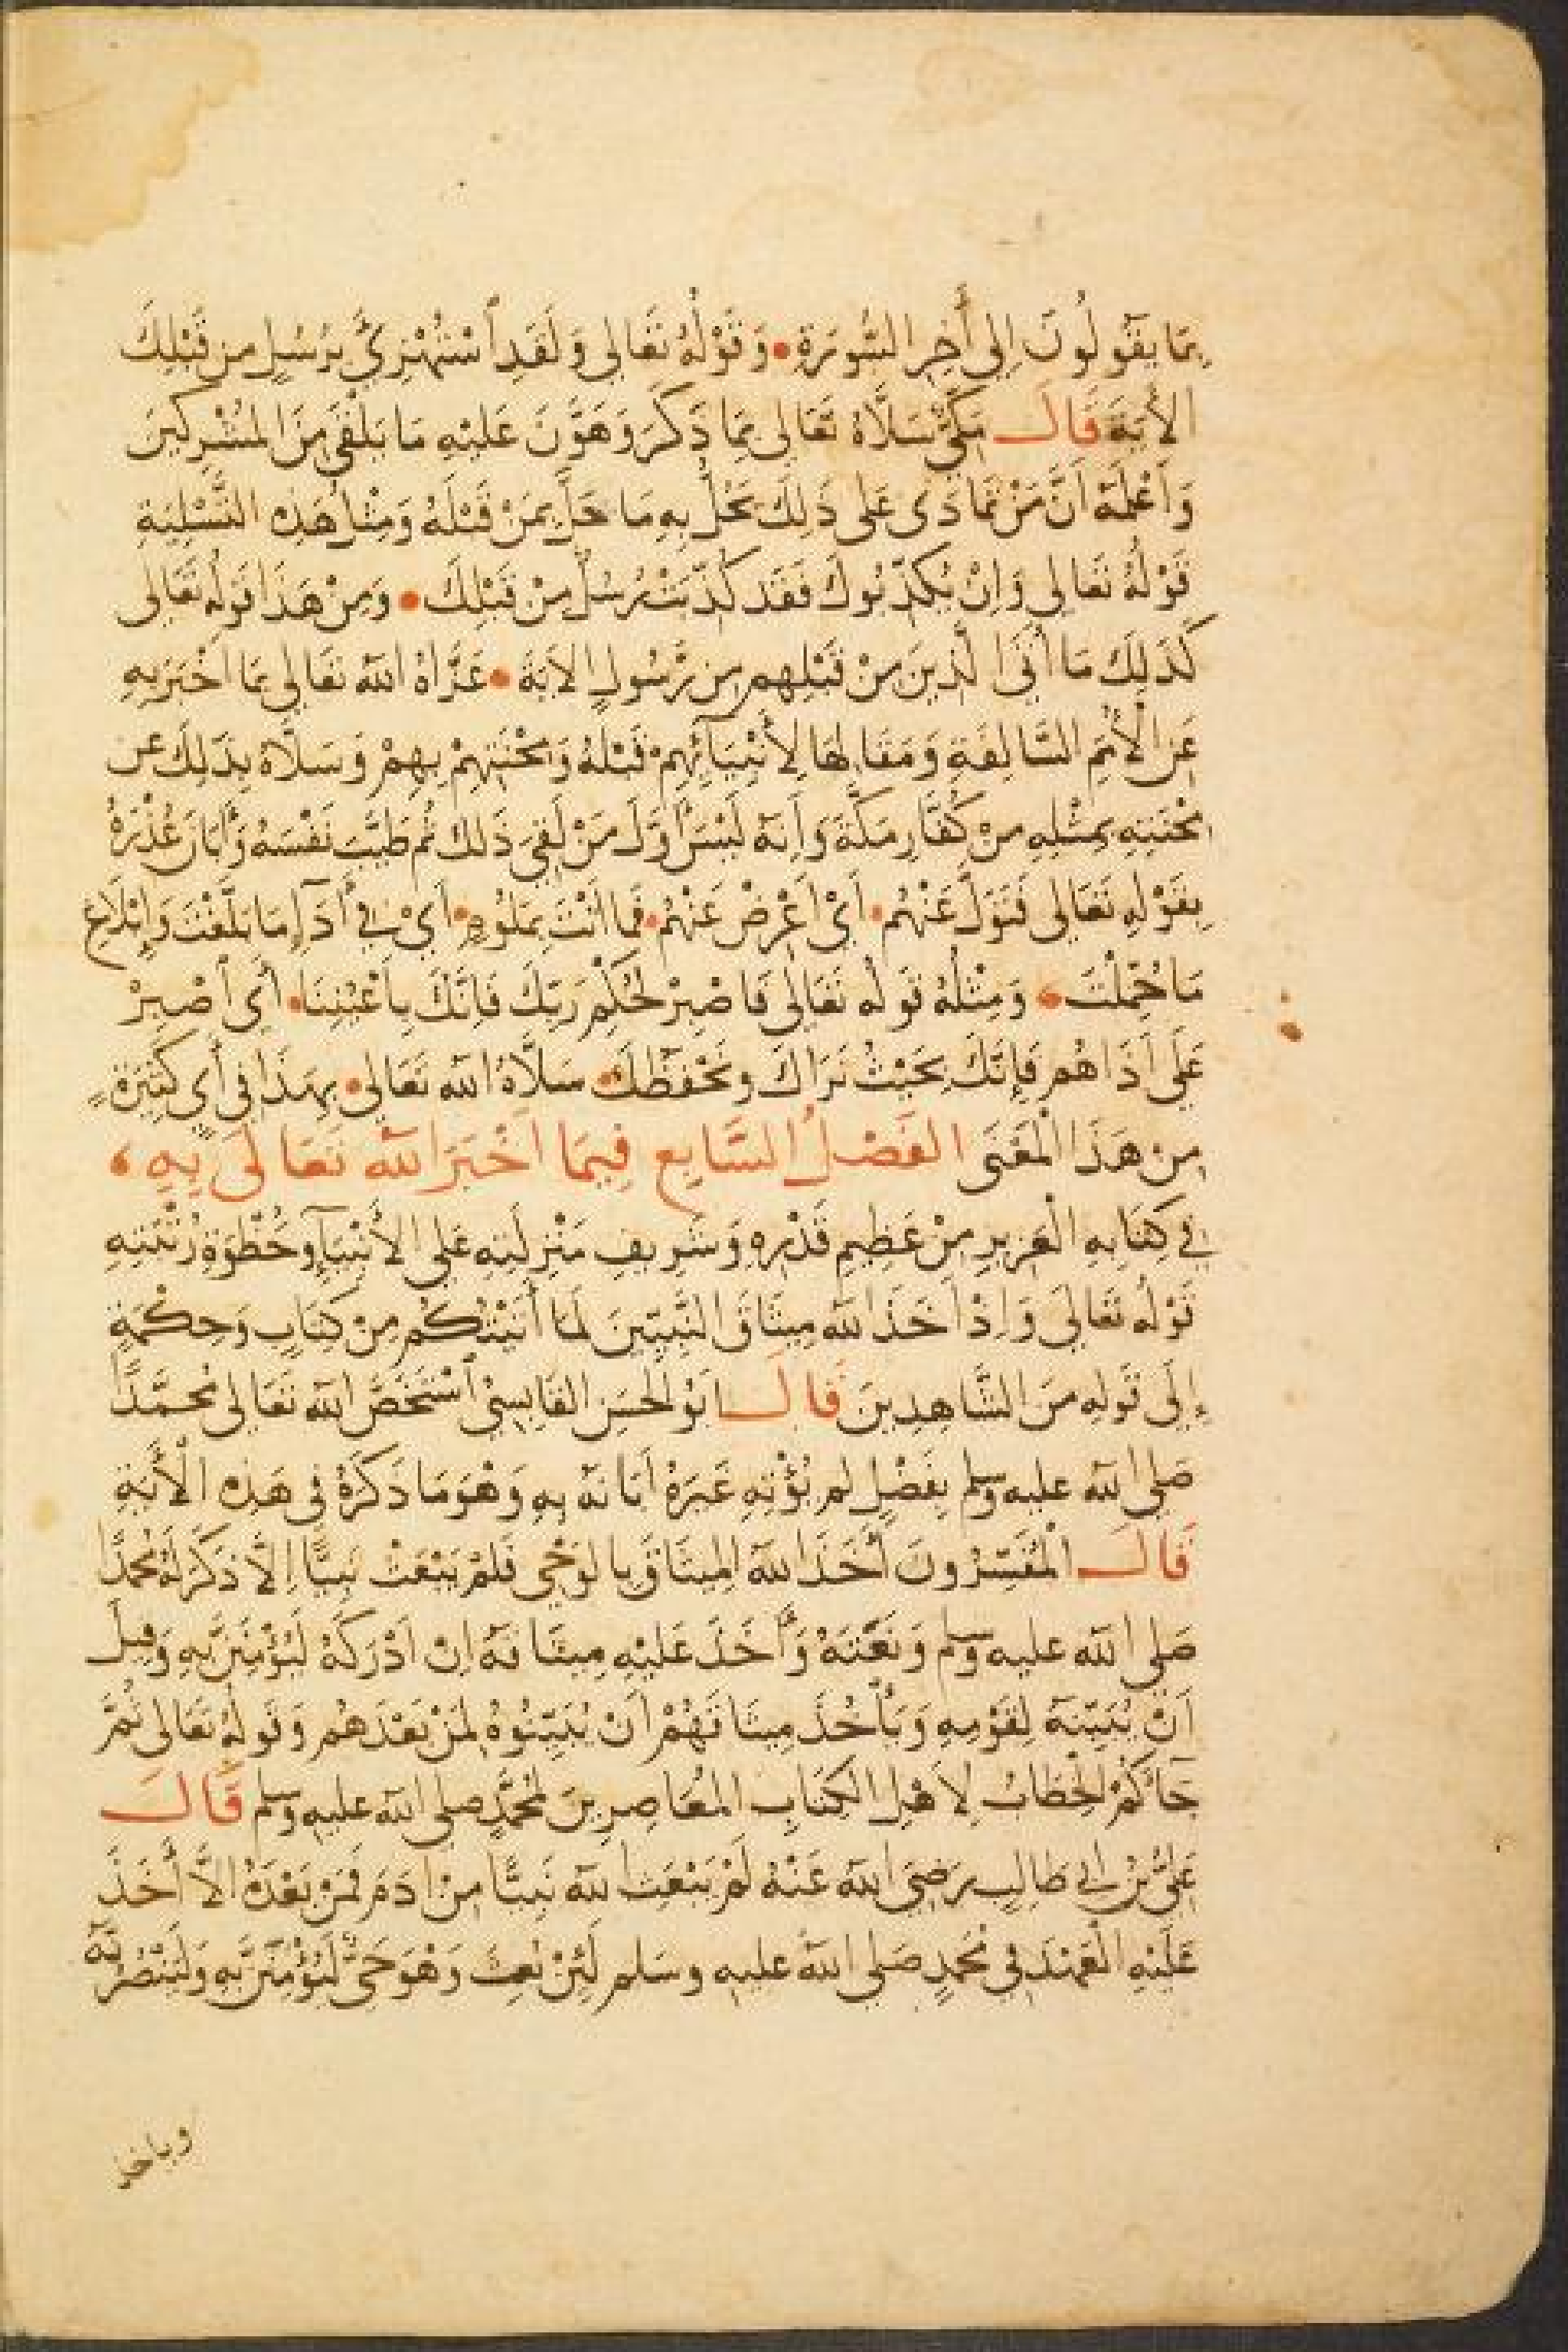 بِمَا يَقُولُونَ إِلَى أَخِرِ السُّورَةِ • وَقَوْلُهُ تَعَالَى وَلَقَدِ اسْتُهْزِئَ بِرُسُلٍ مِن قَبْلِكَ
الآيَةَ قَالَ مَكِّيٌّ سَلَّاهُ تَعَالَى بِمَا ذَكَرَ وَهَوَّنَ عَلَيْهِ مَا يَلْقَى مِنَ الْمُشْرِكِينَ
وَأَعْلَمَهُ أَنَّ مَنْ تَمَادَى عَلَى ذَلِكَ يَحُلُّ بِهِ مَا حَلَّ بِمَنْ قَبْلَهُ وَمِثْلُ هَذِهِ التَّسْلِيَةِ
قَوْلُهُ تَعَالَى وَإِنْ يُكَذِّبُوكَ فَقَد كُذِّبَتْ رُسُلٌ مِنْ قَبْلِكَ • وَمِنْ هَذَا قَوْلُهُ تَعَالَى
كَذَلِكَ مَا أَتَى الَّذِينَ مِنْ قَبْلِهِم مِن رَّسُولٍ الآيَةَ • عَزَّاهُ اللّه تَعَالَى بِمَا أَخْبَرَ بِهِ
عَنِ الْأُمَمِ السَّالِفَةِ وَمَقَالِهَا لِأَنْبِيَآئِهِمْ قَبْلَهُ وَمِحْنَتِهِمْ بِهِمْ وَسَلَّاهُ بِذَلِكَ عن
مِحْنَتِهِ بِمِثْلِهِ مِنْ كُفَّارِ مَكَّةَ وَأَنَّهُ لَيْسَ أَوَّلَ مَنْ لَقِيَ ذَلِكَ ثُمَّ طَيَّبَ نَفْسَهُ وَأَبَانَ عُذْرَهُ
بِقَوْلِهِ تَعَالَى فَتَوَلَّ عَنْهُم • أَيْ أَعْرِضْ عَنْهُم • فَمَا أَنْتَ بِمَلُومٍ • أَيْ فِي أَدَآءِ مَا بَلَّغْتَ وَإِبْلَاغِ
مَا حُمِّلْتَ • وَمِثْلُهُ قَولُهُ تَعَالَى فَاصْبِرْ لِحُكْمِ رَبِّكَ فَإِنَّكَ بِأَعْيُنِنَا • أَيِ اصْبِرْ
عَلَى أَذَاهُم فَإِنَّكَ بِحَيْثُ نَرَاكَ وَنَحْفَظُكَ • سَلَّاهُ اللّه تَعَالَى • بِهَذَا فِي آيٍ كَثِيرَةٍ
مِن هَذَا الْمَعْنَى الفَصْلُ السَّابِع فِيمَا أَخْبَرَ اللّه تَعَالَى بِهِ ،
فِي كِتَابِهِ الْعَزِيزِ مِنْ عَظِيمِ قَدْرِهِ وَشَرِيفِ مَنْزِلَتِهِ عَلَى الأَنْبِيَآءِ وَحُظْوَةِ رُتْبَتِهِ
قَوْلُهُ تَعَالَى وَإِذْ أَخَذَ اللّه مِيثَاقَ النَّبِيِّينَ لَمَا آتَيْتُكُم مِنْ كِتَابٍ وَحِكْمَةٍ
إِلَى قَولِهِ مِنَ الشَّاهِدِينَ قَالَ أَبُو الْحَسَنِ القَابِسِيُّ اسْتَخَصَّ اللّه تَعَالَى مُحَمَّدًا
صَلَى اللّه عليه وسلم بِفَضْلٍ لم يُؤْتِهِ غَيرَهُ أَبَانَهُ بِهِ وَهْوَ مَا ذَكَرَهُ فِي هَذِهِ الْأَيَةِ
قَالَ الْمُفَسِّرُونَ أَخَذَ اللّه المِيثَاقَ بِالوَحْيِ فَلَمْ يَبْعَثْ نَبِيًّا إِلَّا ذَكَرَ لَهُ مُحَمَّدًا
صَلى اللّه عليه وسلم وَنَعْتَهُ وَأَخَذَ عَلَيْهِ مِيثَاقَهُ إِنْ أَدْرَكَهُ لَيُؤْمِنَنَّ بِهِ وَقِيلَ
أَنْ يُبَيِّنَهُ لِقَوْمِهِ وَيَأْخُذَ مِيثَاقَهُمْ أَنْ يُبَيِّنُوهُ لِمَنْ بَعْدَهُم وَقَولُهُ تَعَالَى ثُمَّ
جَآءَكُمْ الْخِطَابُ لِأَهْلِ الكِتَابِ المُعَاصِرِينَ لِمُحَمَّدٍ صلى اللّه عليه وسلم قَالَ
عَلِيُّ بْنُ أَبِي طَالِبٍ رَضِيَ اللّه عَنْهُ لَمْ يَبْعَثِ اللّه نَبِيًّا مِنْ آدَمَ فَمَنْ بَعْدَهُ إِلَّا أَخَذَ
عَلَيْهِ الْعَهْدَ فِي مُحَمَدٍ صَلى اللّه عليه وسَلم لَئِنْ بُعِثَ وَهْوَ حَيٌّ لَيُؤْمِنَنَّ بِهِ وَلَيَنْصُرَنَّهُ
وياخذ